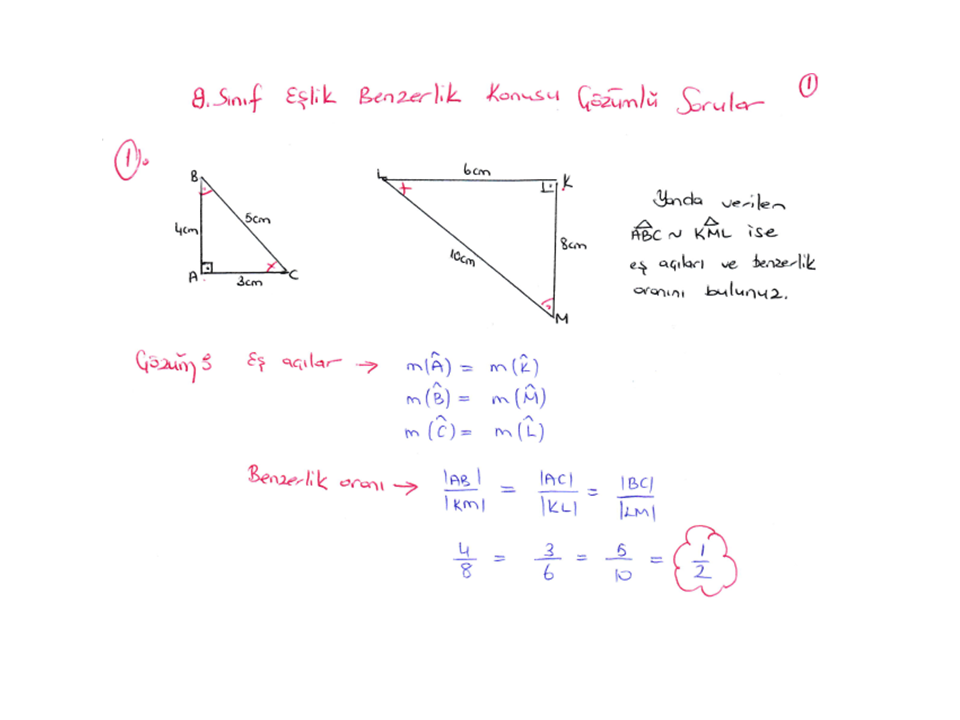 8. Sınıf Eşlik Benzerlik Konusu Çözümlü Sorular 1
1.
B
4cm
5cm
A
3cm
C
L
6cm
K
10cm
8cm
M
Yanda verilen
ABC ~ KML ise
eş açıları ve benzerlik
oranını bulunuz.
Çözüm: Eş açılar → m(Â) = m(K̂)
m(B̂) = m(M̂)
m(Ĉ) = m(L̂)
Benzerlik oranı → |AB|/|KM| = |AC|/|KL| = |BC|/|LM|
4/8 = 3/6 = 5/10 = 1/2